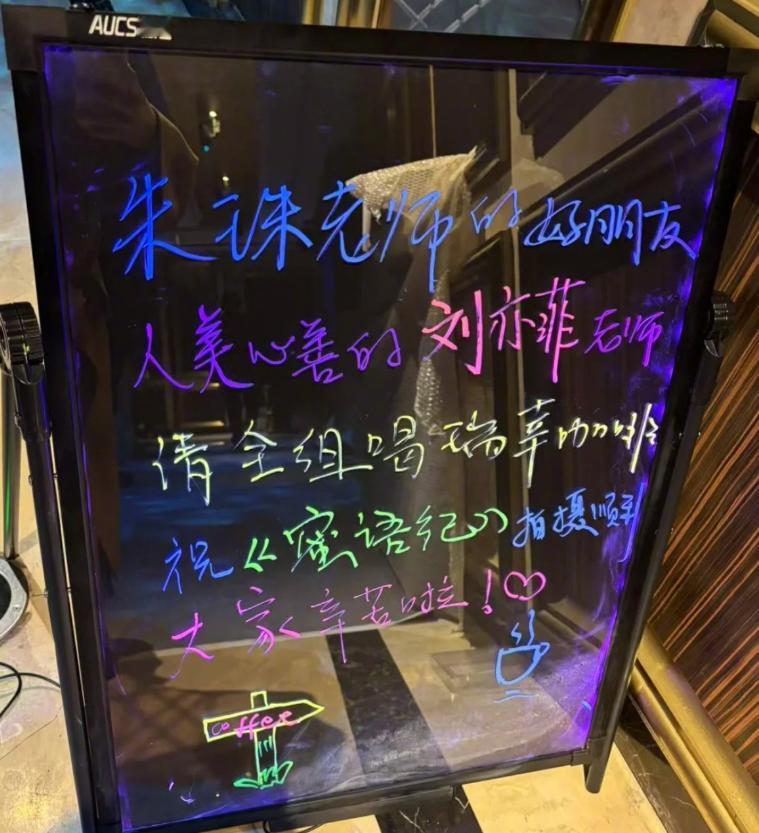 AUCS
朱珠老师的好朋友
人美心善的刘亦菲老师
倩全组喝瑞幸咖啡
祝《蜜语纪》拍摄顺利
大家辛苦啦！♡
coffee